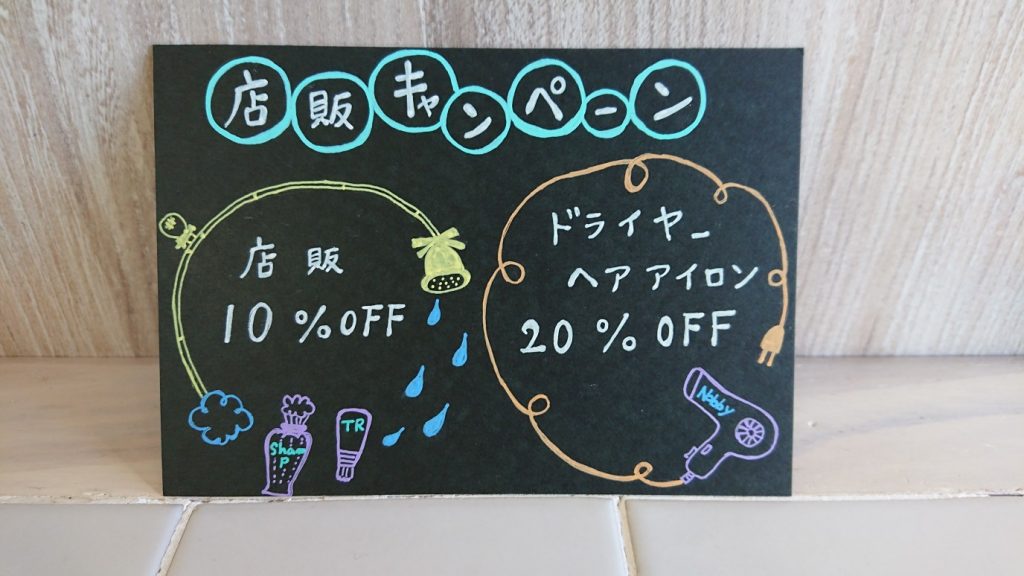 店販キャンペーン
店販
10%OFF
ドライヤー
ヘアアイロン
20%OFF
Sham
P
TR
Nobby